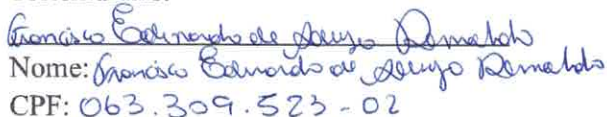 Francisco Edinardo de Araujo Romualdo
Nome: Francisco Edinardo de Araujo Romualdo
CPF: 063.309.523-02